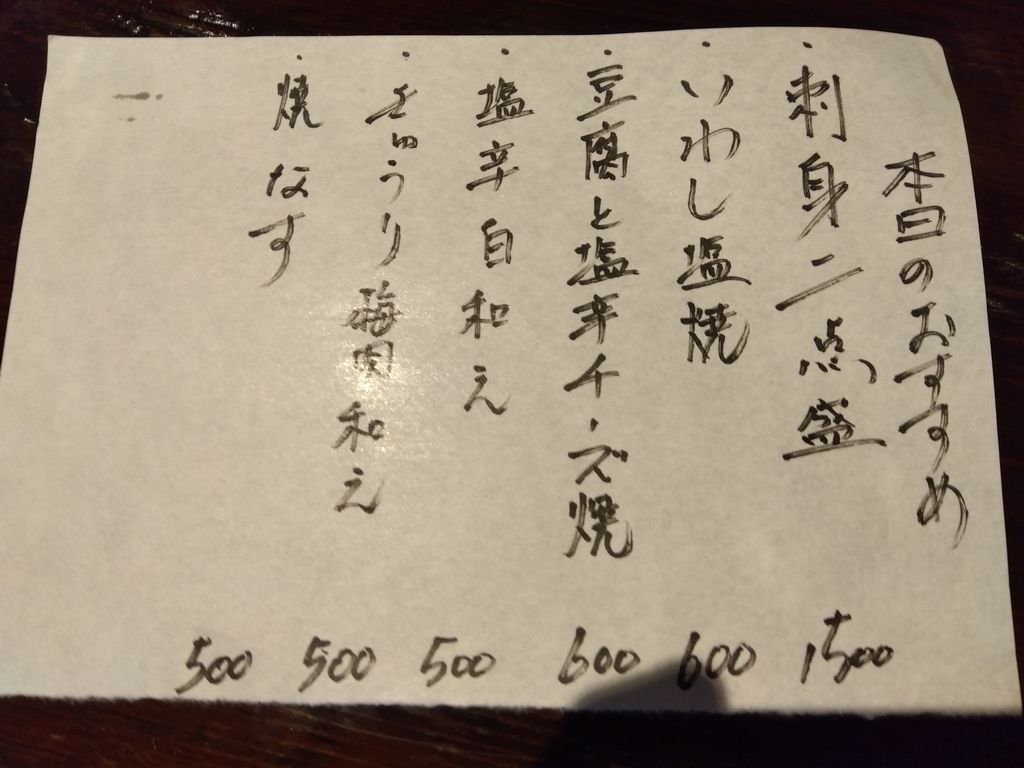 本日のおすすめ
・刺身二点盛 1500
・いわし塩焼 600
・豆腐と塩辛チーズ焼 600
・塩辛白和え 500
・きゅうり梅肉和え 500
・焼なす 500